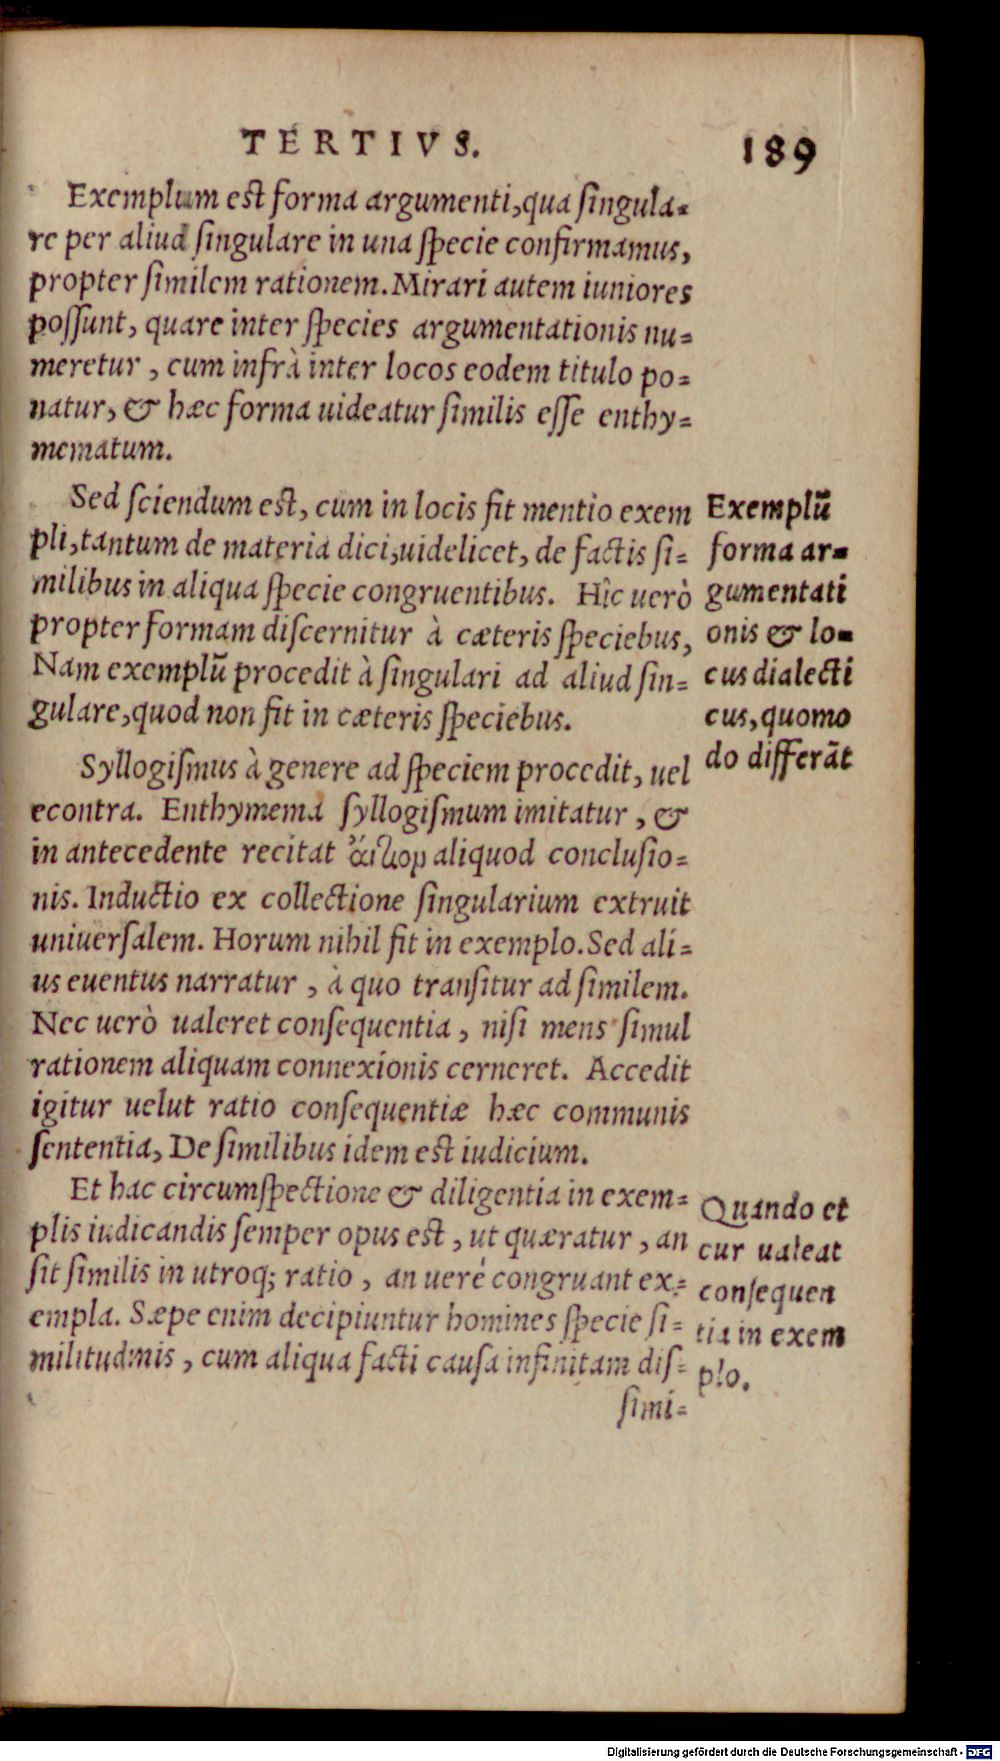 TERTIVS. 189
Exemplum est forma argumenti, qua singula-
re per aliud singulare in una specie confirmamus,
propter similem rationem. Mirari autem iuniores
possunt, quare inter species argumentationis nu-
meretur, cum infrà inter locos eodem titulo po-
natur, & hæc forma uideatur similis esse enthy-
mematum.
Sed sciendum est, cum in locis fit mentio exem
pli, tantum de materia dici, uidelicet, de factis si-
milibus in aliqua specie congruentibus. Hîc uerò
propter formam discernitur à cæteris speciebus,
Nam exemplũ procedit à singulari ad aliud sin-
gulare, quod non fit in cæteris speciebus.
Exemplũ
forma ar-
gumentati
onis & lo-
cus dialecti
cus, quomo
do differãt
Syllogismus à genere ad speciem procedit, uel
econtra. Enthymema syllogismum imitatur, &
in antecedente recitat ἄιτιον aliquod conclusio-
nis. Inductio ex collectione singularium extruit
uniuersalem. Horum nihil fit in exemplo. Sed ali-
us euentus narratur, à quo transitur ad similem.
Nec uerò ualeret consequentia, nisi mens simul
rationem aliquam connexionis cerneret. Accedit
igitur uelut ratio consequentiæ hæc communis
sententia, De similibus idem est iudicium.
Et hac circumspectione & diligentia in exem-
plis iudicandis semper opus est, ut quæratur, an
sit similis in utroq; ratio, an uerè congruant ex-
empla. Sæpe enim decipiuntur homines specie si-
militudinis, cum aliqua facti causa infinitam dis-
simi-
Quando et
cur ualeat
consequen
tia in exem
plo.
Digitalisierung gefördert durch die Deutsche Forschungsgemeinschaft - DFG